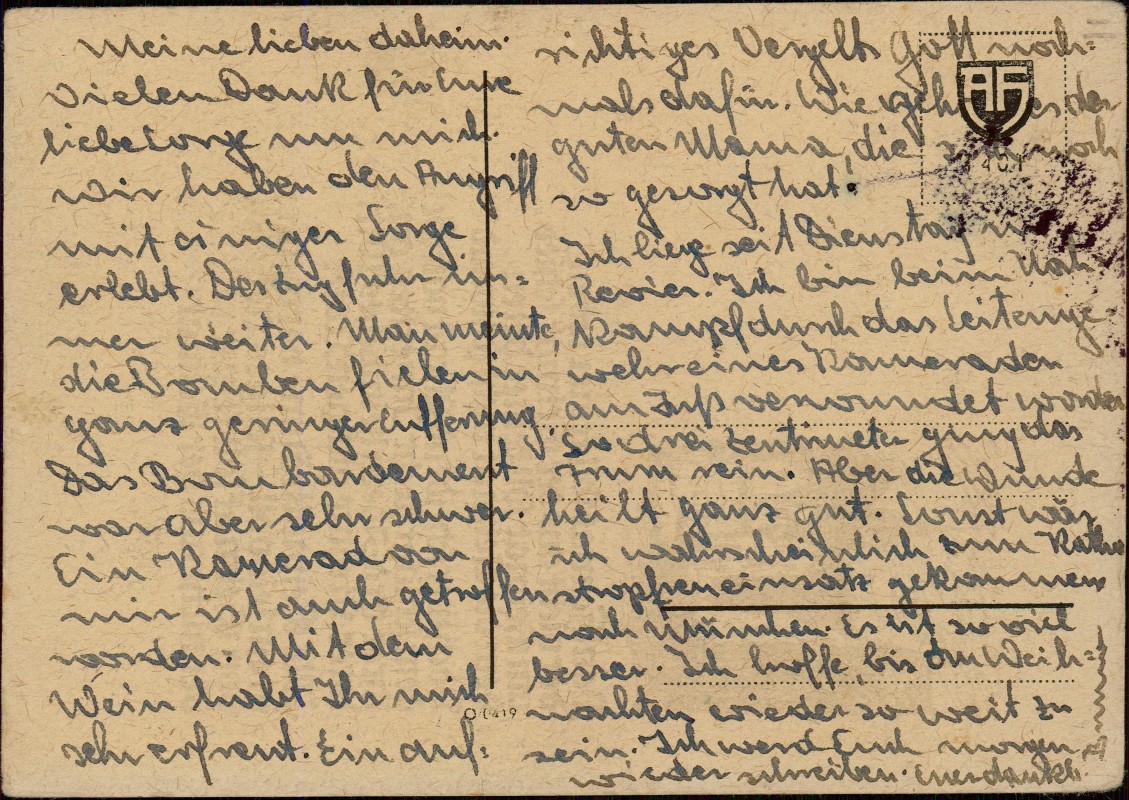 Meine lieben daheim.
Vielen Dank für Eure
liebe Sorge um mich.
Wir haben den Angriff
mit einiger Sorge
erlebt. Der Zug fuhr im=
mer weiter. Man meinte,
die Bomben fielen in
ganz geringer Entfernung.
Das Bombardement
war aber sehr schwer.
Ein Kamerad von
mir ist auch getroffen
worden. Mit dem
Wein habt Ihr mich
sehr erfreut. Ein auf=
O/0419
sichtiges Vergelts Gott noch=
mals dafür. Wie geht es der
guten Mama, die noch
so gesorgt hat.
Ich liege seit Dienstag im
Revier. Ich bin beim Nah
Kampf durch das Seitenge
wehr eines Kameraden
am Fuß verwundet worden
So drei Zentimeter ging das
Trum rein. Aber die Wunde
heilt ganz gut. Sonst wär
ich wahrscheinlich zum Kata
stropheneinsatz gekommen
nach München. Es ist so viel
besser. Ich hoffe, bis Weih=
nachten wieder so weit zu
sein. Ich werd Euch morgen
wieder schreiben. Euer dankb.
AF